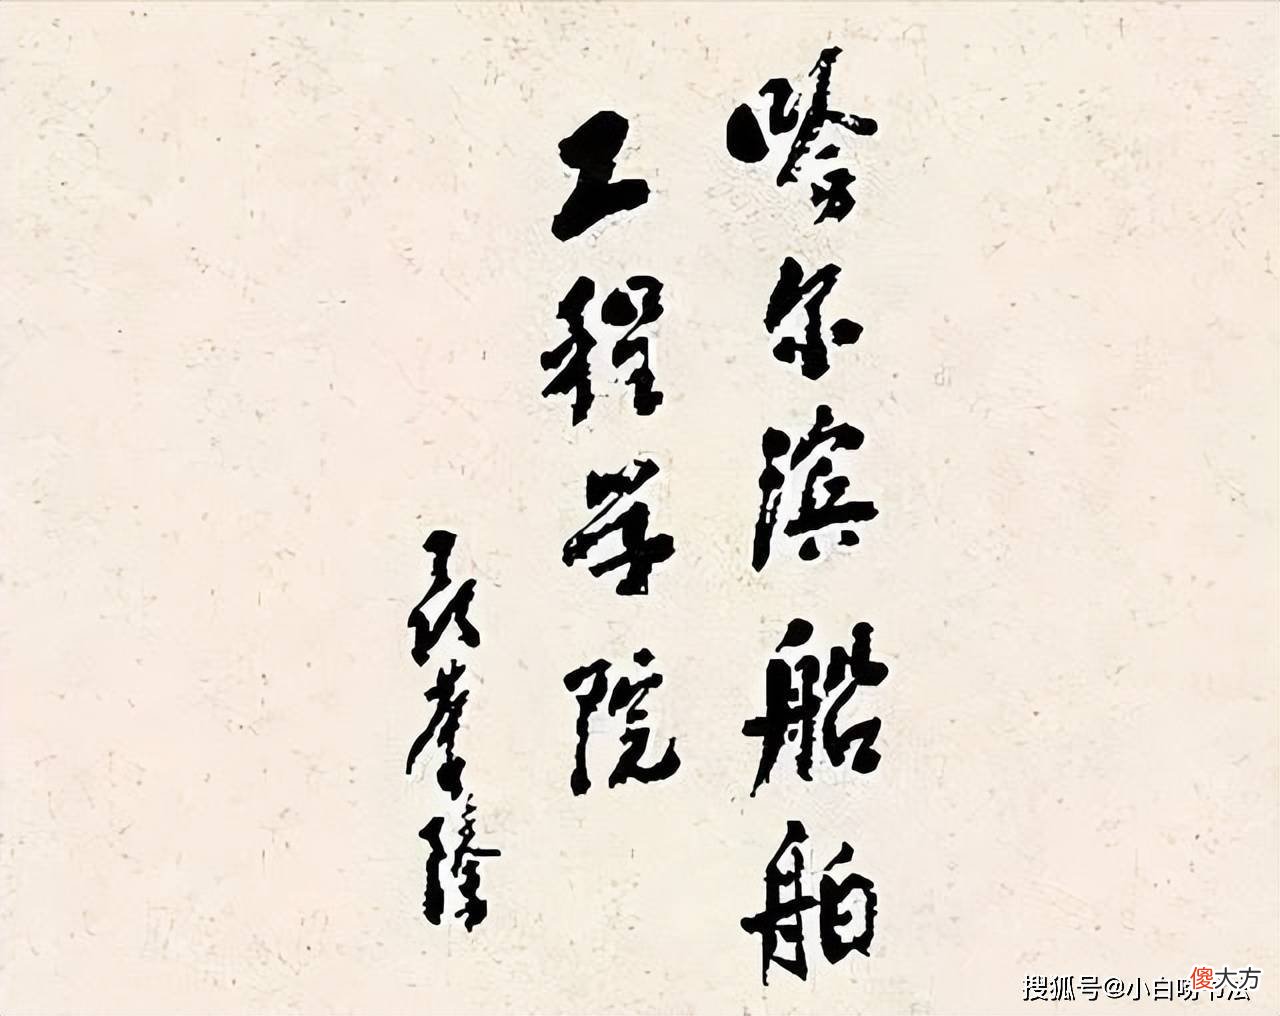 哈尔滨船舶
工程学院
聂荣臻
搜狐号@小白
傻大方